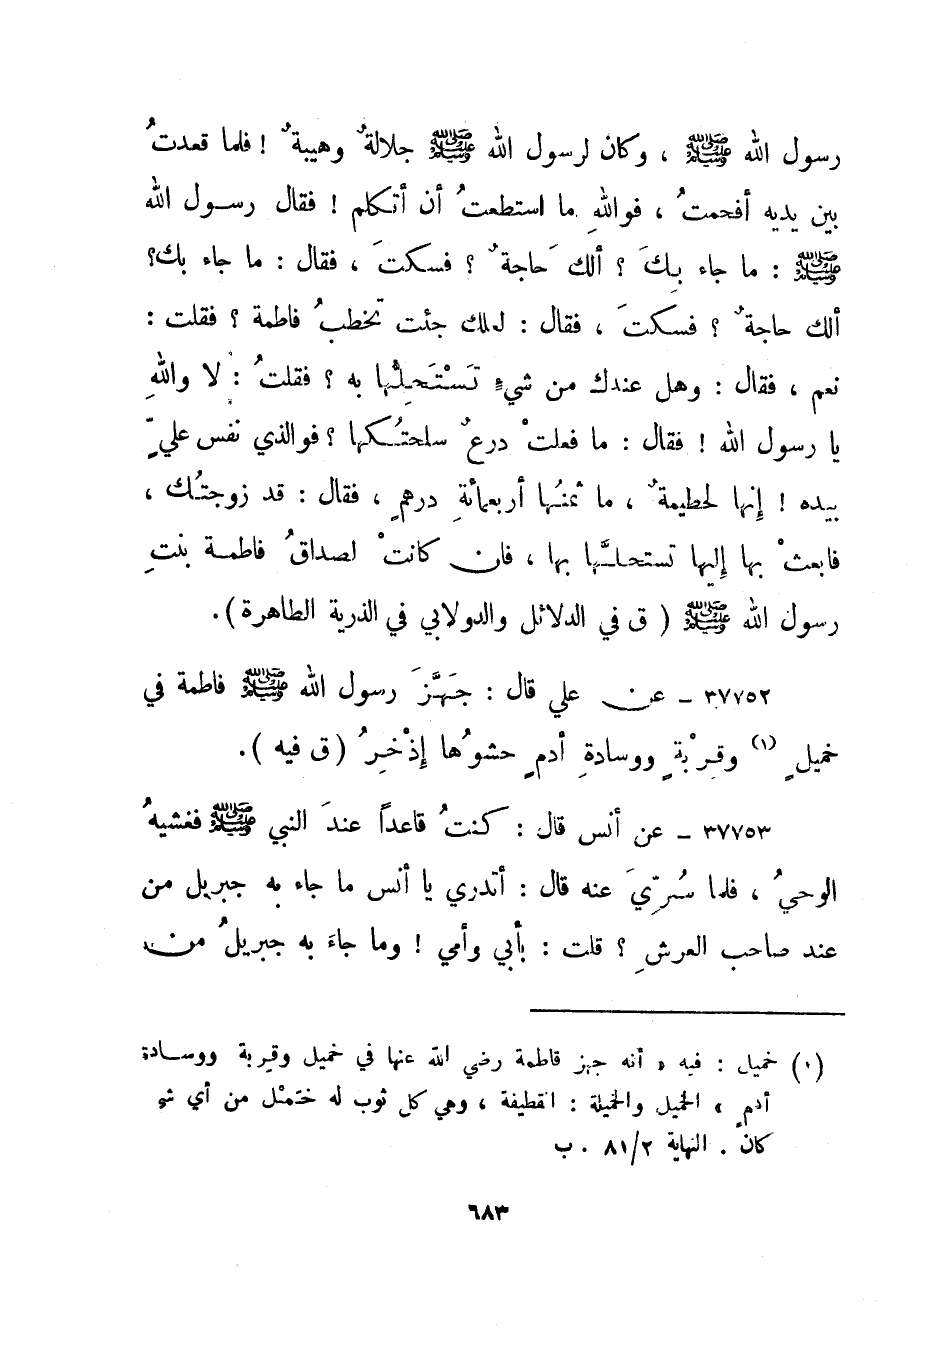 رسول الله ﷺ ، وكان لرسول الله ﷺ جلالةٌ وهيبةٌ ! فلما قعدتُ
بين يديه أفحمتُ ، فواللهِ ما استطعتُ أن أتكلم ! فقال رسول الله
ﷺ : ما جاء بِكَ ؟ ألكَ حاجةٌ ؟ فسكتَ ، فقال : ما جاء بك؟
ألك حاجةٌ ؟ فسكتَ ، فقال : لعلك جئت تخطبُ فاطمة ؟ فقلت :
نعم ، فقال : وهل عندك من شيءٍ تَسْتَحِلُّها به ؟ فقلتُ : لا واللهِ
يا رسول الله ! فقال : ما فعلتْ درعٌ سلحتُكها ؟ فوالذي نفس عليٍّ
بيده ! إنها لحطيمةٌ ، ما ثمنُها أربعمائةِ درهمٍ ، فقال : قد زوجتُك ،
فابعثْ بها إليها تستحلَّها بها ، فان كانتْ لصداقُ فاطمة بنتِ
رسول الله ﷺ ( ق في الدلائل والدولابي في الذرية الطاهرة ).
٣٧٧٥٢ ـ عن علي قال : جَهَّزَ رسول الله ﷺ فاطمة في
خميلٍ (١) وقِرْبةٍ ووسادةِ أدمٍ حشوُها إذْخِرُ ( ق فيه ).
٣٧٧٥٣ ـ عن أنس قال : كنتُ قاعداً عندَ النبي ﷺ فغشيهُ
الوحيُ ، فلما سُرِّيَ عنه قال : أتدري يا أنس ما جاء به جبريل من
عند صاحب العرشِ ؟ قلت : بأبي وأمي ! وما جاءَ به جبريلُ من
(١) خميل : فيه « أنه جهز فاطمة رضي الله عنها في خميل وقربة ووسادة
أدمٍ » الخميل والخميلة : القطيفة ، وهي كل ثوب له خَمْل من أي شيء
كان . النهاية ٢/٨١ . ب
٦٨٣